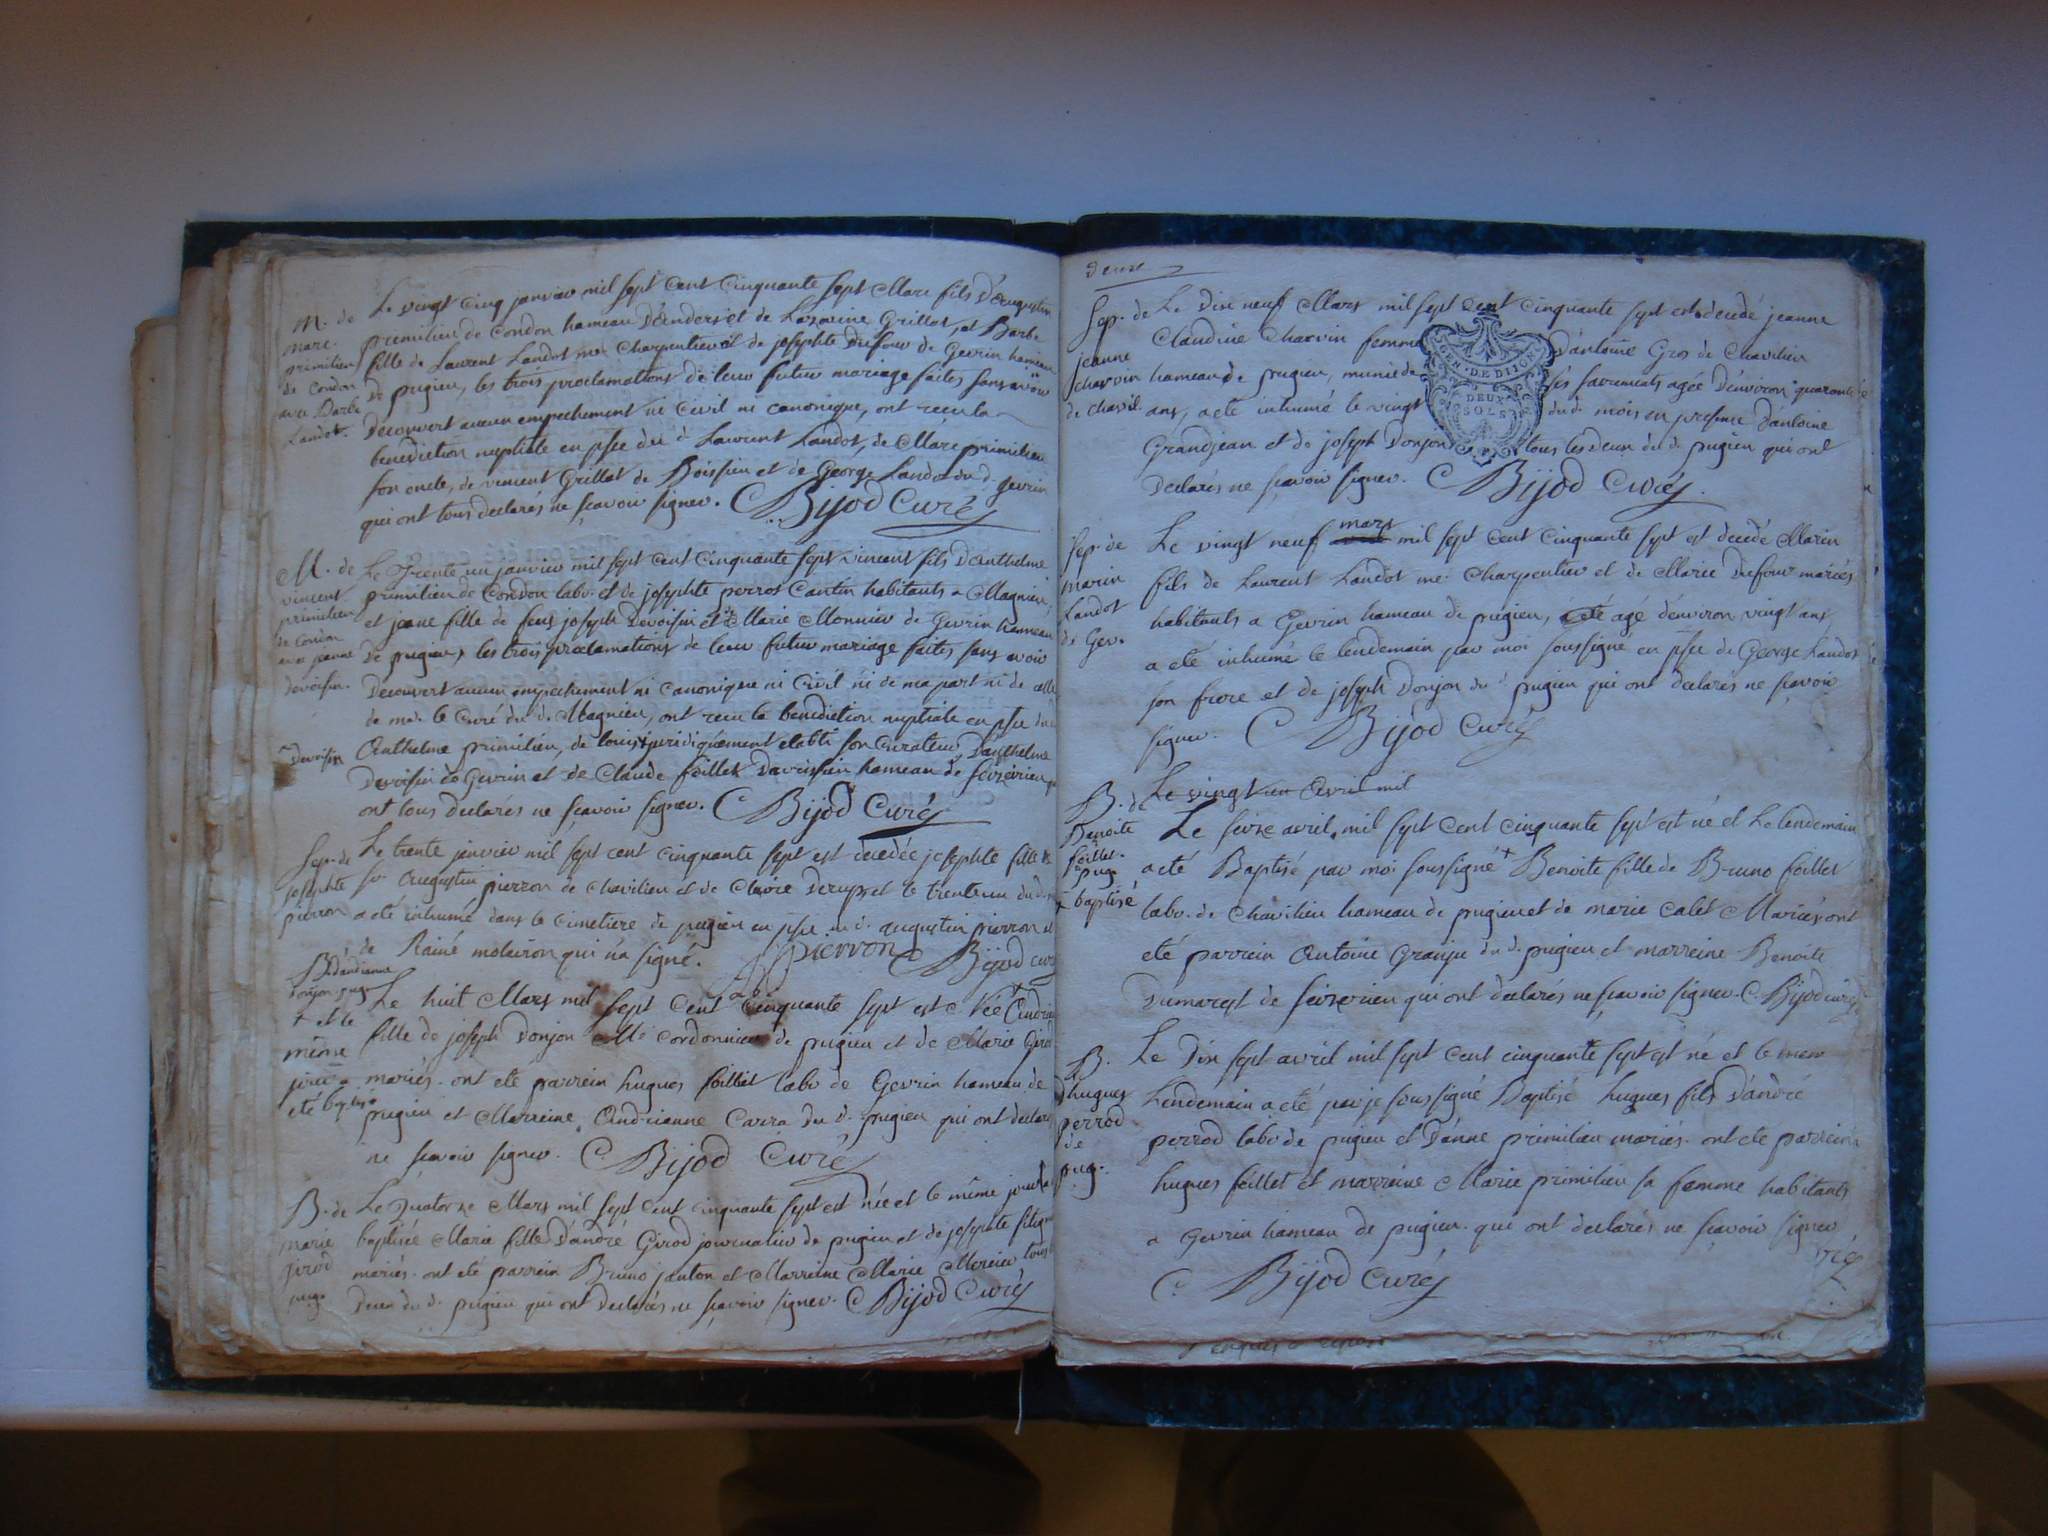 M. de
marc
primilien
de Condon
avec Barbe
Landot.
Le vingt cinq janvier mil sept cent cinquante sept Marc fils D'augustin
primilien de Condon hameau D'anders et de Lazarine Grillot, et Barbe
fille de Laurent Landot me. Charpentier et de josephte Dufour de Gevrin hameau
de pugieu, les trois proclamations de leur futur mariage faites sans avoir
Decouvert aucun empechement ni Civil ni canonique, ont recu la
benediction nuptiale en psce du d. Laurent Landot, de Marc primilien
son oncle, de vincent Grillot de Boissieu et de George Landot du d. Gevrin
qui ont tous declarés ne scavoir signer. Bijod Curé
M. de
vincent
primilien
de Condon
avec jeanne
devoisin.
Le Trente un janvier mil sept cent cinquante sept vincent fils D'anthelme
primilien de Condon labr. et de josephte perrot Cantin habitants a Magnieu,
et jeane fille de feus joseph Devoisin et de Marie Monnier de Gevrin hameau
de pugieu, les trois proclamations de leur futur mariage faites sans avoir
Decouvert aucun empechement ni canonique ni Civil ni de ma part ni de celle
de mr. le Curé du d. Magnieu, ont recu la benediction nuptiale en psce du d.
+ Devoisin
Anthelme primilien, de louis + juridiquement etabli son Curateur, D'anthelme
Devoisin de Gevrin et de Claude foillet Davrissieu hameau de seizerieu qui
ont tous declarés ne scavoir signer. Bijod Curé
Sep. de
josephte
pierron
Le trente janvier mil sept cent cinquante sept est decedée josephte fille de
sr. Augustin pierron de Chavilieu et de Claire Derupt et le trente un du d.
a eté inhumé dans le cimetiere de pugieu en psce du d. augustin pierron et
de Rainé moleiron qui n'a signé. pierron Bijod curé
B. d'andrianne
Donjon. pug.
+ et le
même
jour a
eté baptisée
Le huit Mars mil sept cent cinquante sept est Née + Andrianne
fille de joseph Donjon Me cordonnier de pugieu et de Marie Girod
mariés. ont eté parrein hugues foilliet labr de Gevrin hameau de
pugieu et Marreine Andrianne Carra du d. pugieu qui ont declaré
ne scavoir signer. Bijod Curé
B. de
marie
jirod
pug.
Le Quatorze Mars mil sept cent cinquante sept est née et le même jour a eté
baptisée Marie fille D'andré Girod journalier de pugieu et de josephte
mariés. ont eté parrein Bruno janton et Marreine Marie Mercier tous
deux du d. pugieu qui ont Declarés ne scavoir signer. Bijod Curé
deux
Sep. de
jeanne
charvin
de chavil.
Le Dix neuf Mars mil sept cent cinquante sept est decedé jeanne
Claudine Charvin femme D'antoine Gros de Chavilieu
hameau de pugieu, munie de ses sacrements agée D'environ quarante
ans, a eté inhumé le vingt du d. mois en presence D'antoine
Grandjean et de joseph Donjon tous les deux du d. pugieu qui ont
Declarés ne scavoir signer. Bijod Curé.
GEN. DE DIJON
DEUX
SOLS
Sep. de
marin
Landot
de Gev.
mars
Le vingt neuf mil sept cent cinquante sept est decedé Marin
fils de Laurent Landot me. Charpentier et de Marie Dufour mariés
habitants a Gevrin hameau de pugieu, agé denviron vingt ans
a eté inhumé le lendemain par moi soussigné en psce de George Landot
son frere et de joseph Donjon du d. pugieu qui ont declarés ne scavoir
signer. Bijod Curé
B. de
Benoite
foillet.
pug.
+ baptisé
Le vingt un Avril mil
Le seize avril mil sept cent cinquante sept est né et Le lendemain
a eté Baptisé par moi soussigné + Benoite fille de Bruno foillet
labr. de Chavilieu hameau de pugieu et de marie Calet Mariés. ont
eté parrein Antoine Granju du d. pugieu et marreine Benoite
Dumarest de seizerieu qui ont declarés ne scavoir signer. Bijod curé
B.
d'hugues
perrod
de
pug.
Le Dix sept avril mil sept cent cinquante sept est né et le
Lendemain a eté par je soussigné Baptisé hugues fils D'andré
perrod labr de pugieu et D'anne primilieu mariés. ont eté parrein
hugues foillet et marreine Marie primilieu sa femme habitants
a Gevrin hameau de pugieu. qui ont declarés ne scavoir signer
Bijod Curé